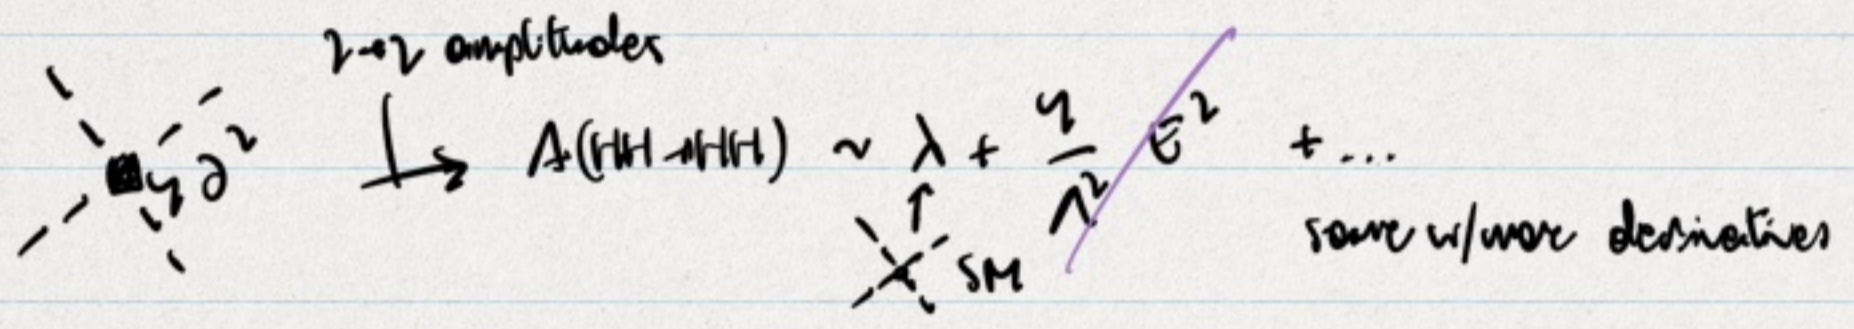 2→2 amplitudes
η∂² ↳ A(HH→HH) ~ λ + η/Λ² E² + ...
SM same w/more derivatives